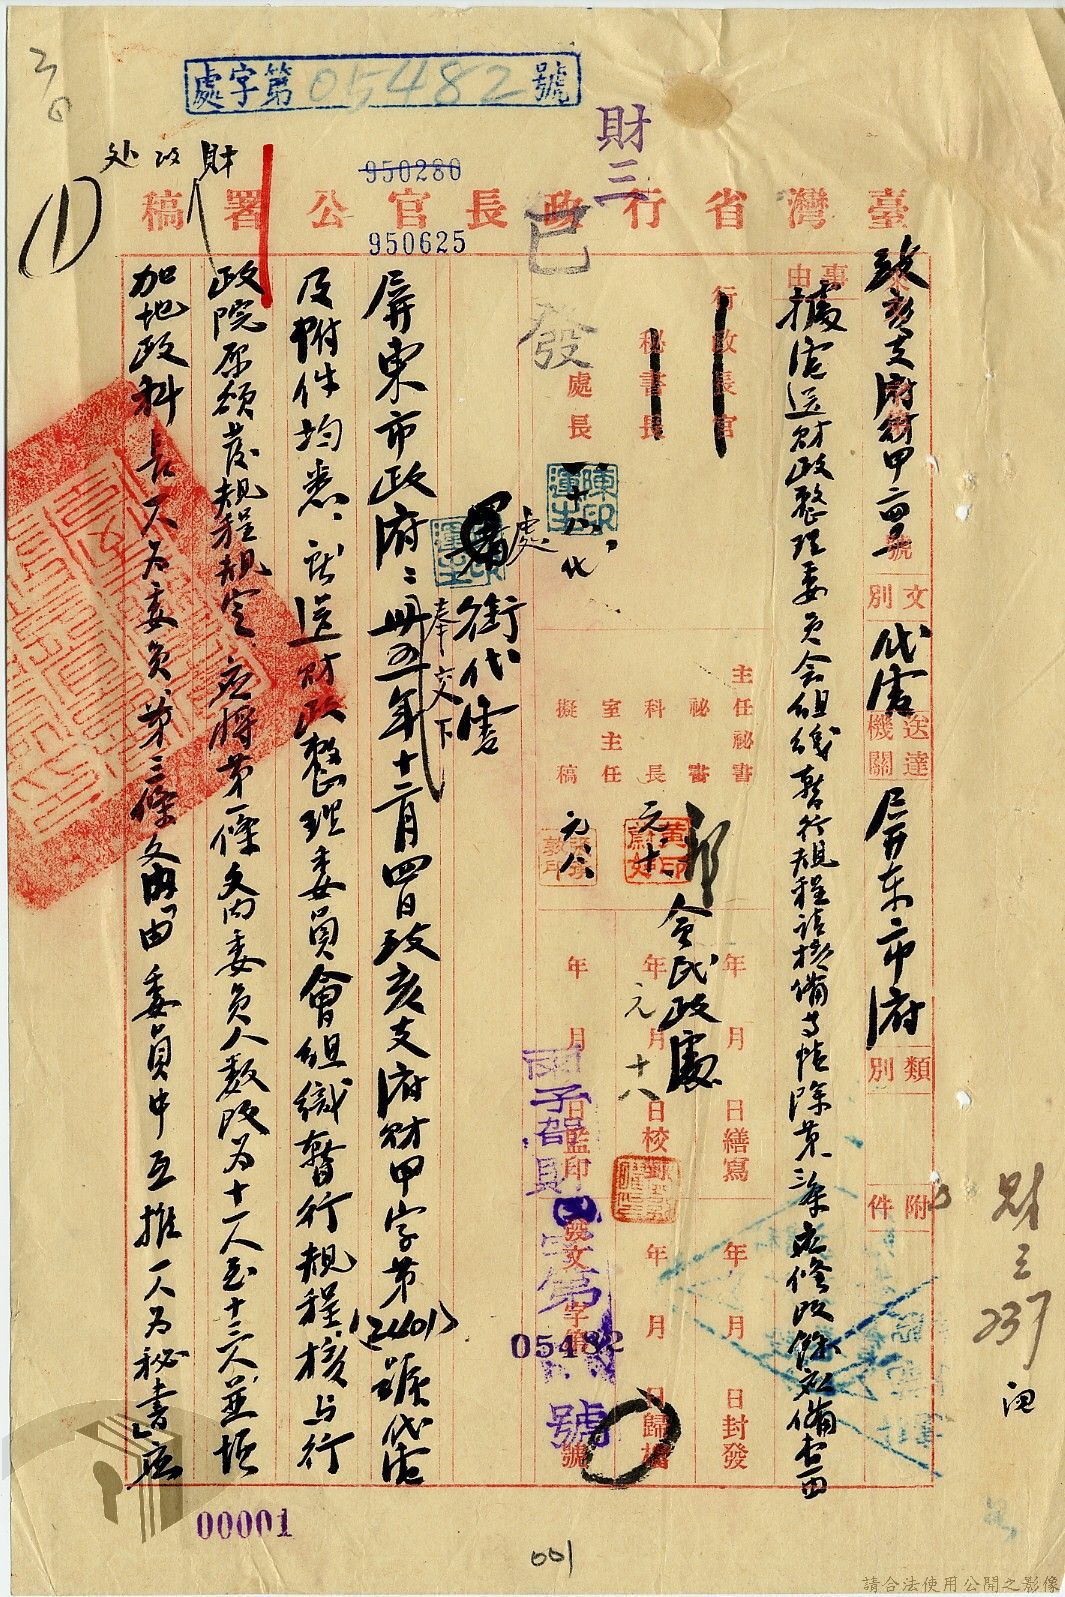 處字第05482號
財三
950280
950625
財政处
(1)
臺灣省行政長官公署稿
致亥支府財甲2401號
文別
代電
送達機關
屏東市府
類別
附件
事由
據電送財政整理委員会組織暫行規程請核備等情除第三条应修改餘准備查由
行政長官
秘書長
處長
十八代
已發
主任秘書
秘書
科長
室主任
擬稿
元十
元六
会民政處
年月日繕寫
年月日校對
元十八
年月日監印
年月日封發
年月日歸檔
發文字第號
05482
處銜代電
奉交下
屏東市政府：卅五年十二月四日致亥支府財甲字第(2401)號代電
及附件均悉、所送財政整理委員會組織暫行規程、核与行
政院原頒發規程規定、应將第一條文内委员人数改为十一人至十三人并增
加地政科長一人为委员、第三條文「由委員中互推一人为秘書」应
财三
237
00001
001
請合法使用公開之影像